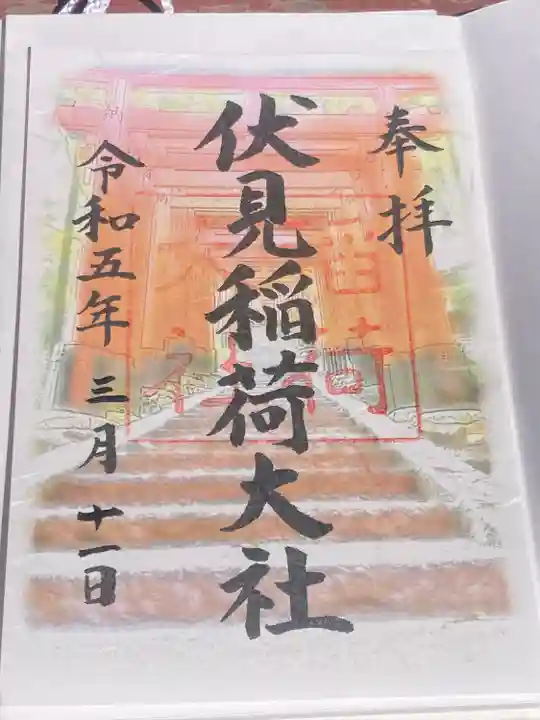 奉拝
伏見稲荷大社
令和五年三月十一日